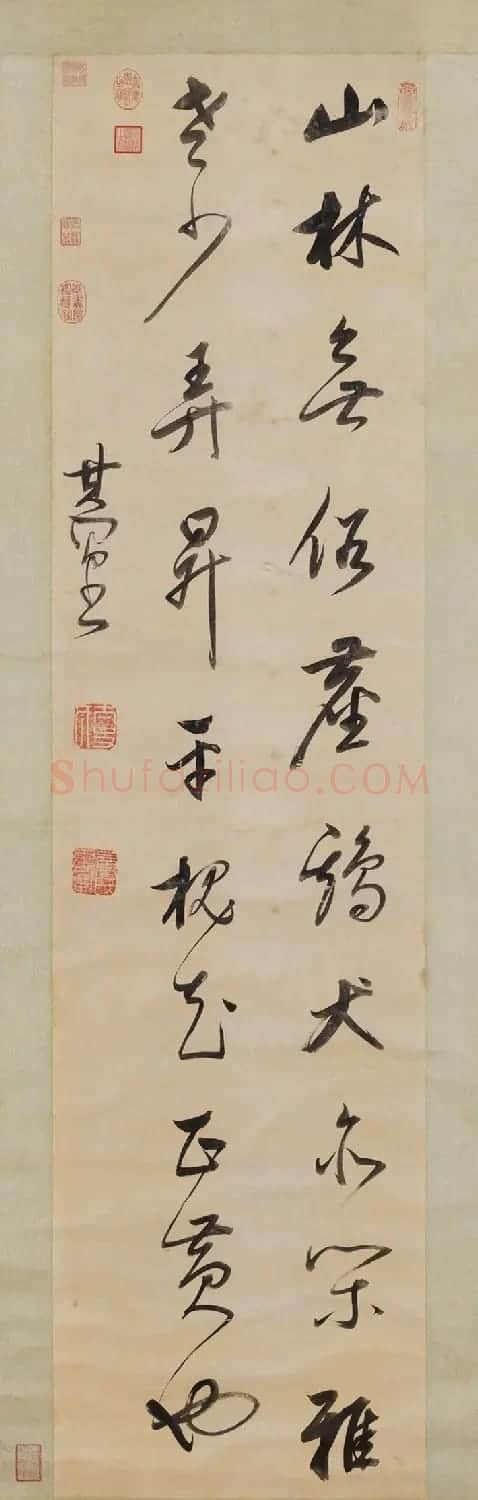 山林無俗塵鷄犬亦閑雅
老少弄昇平槐花正黄也
其昌
Shufaziliao.COM